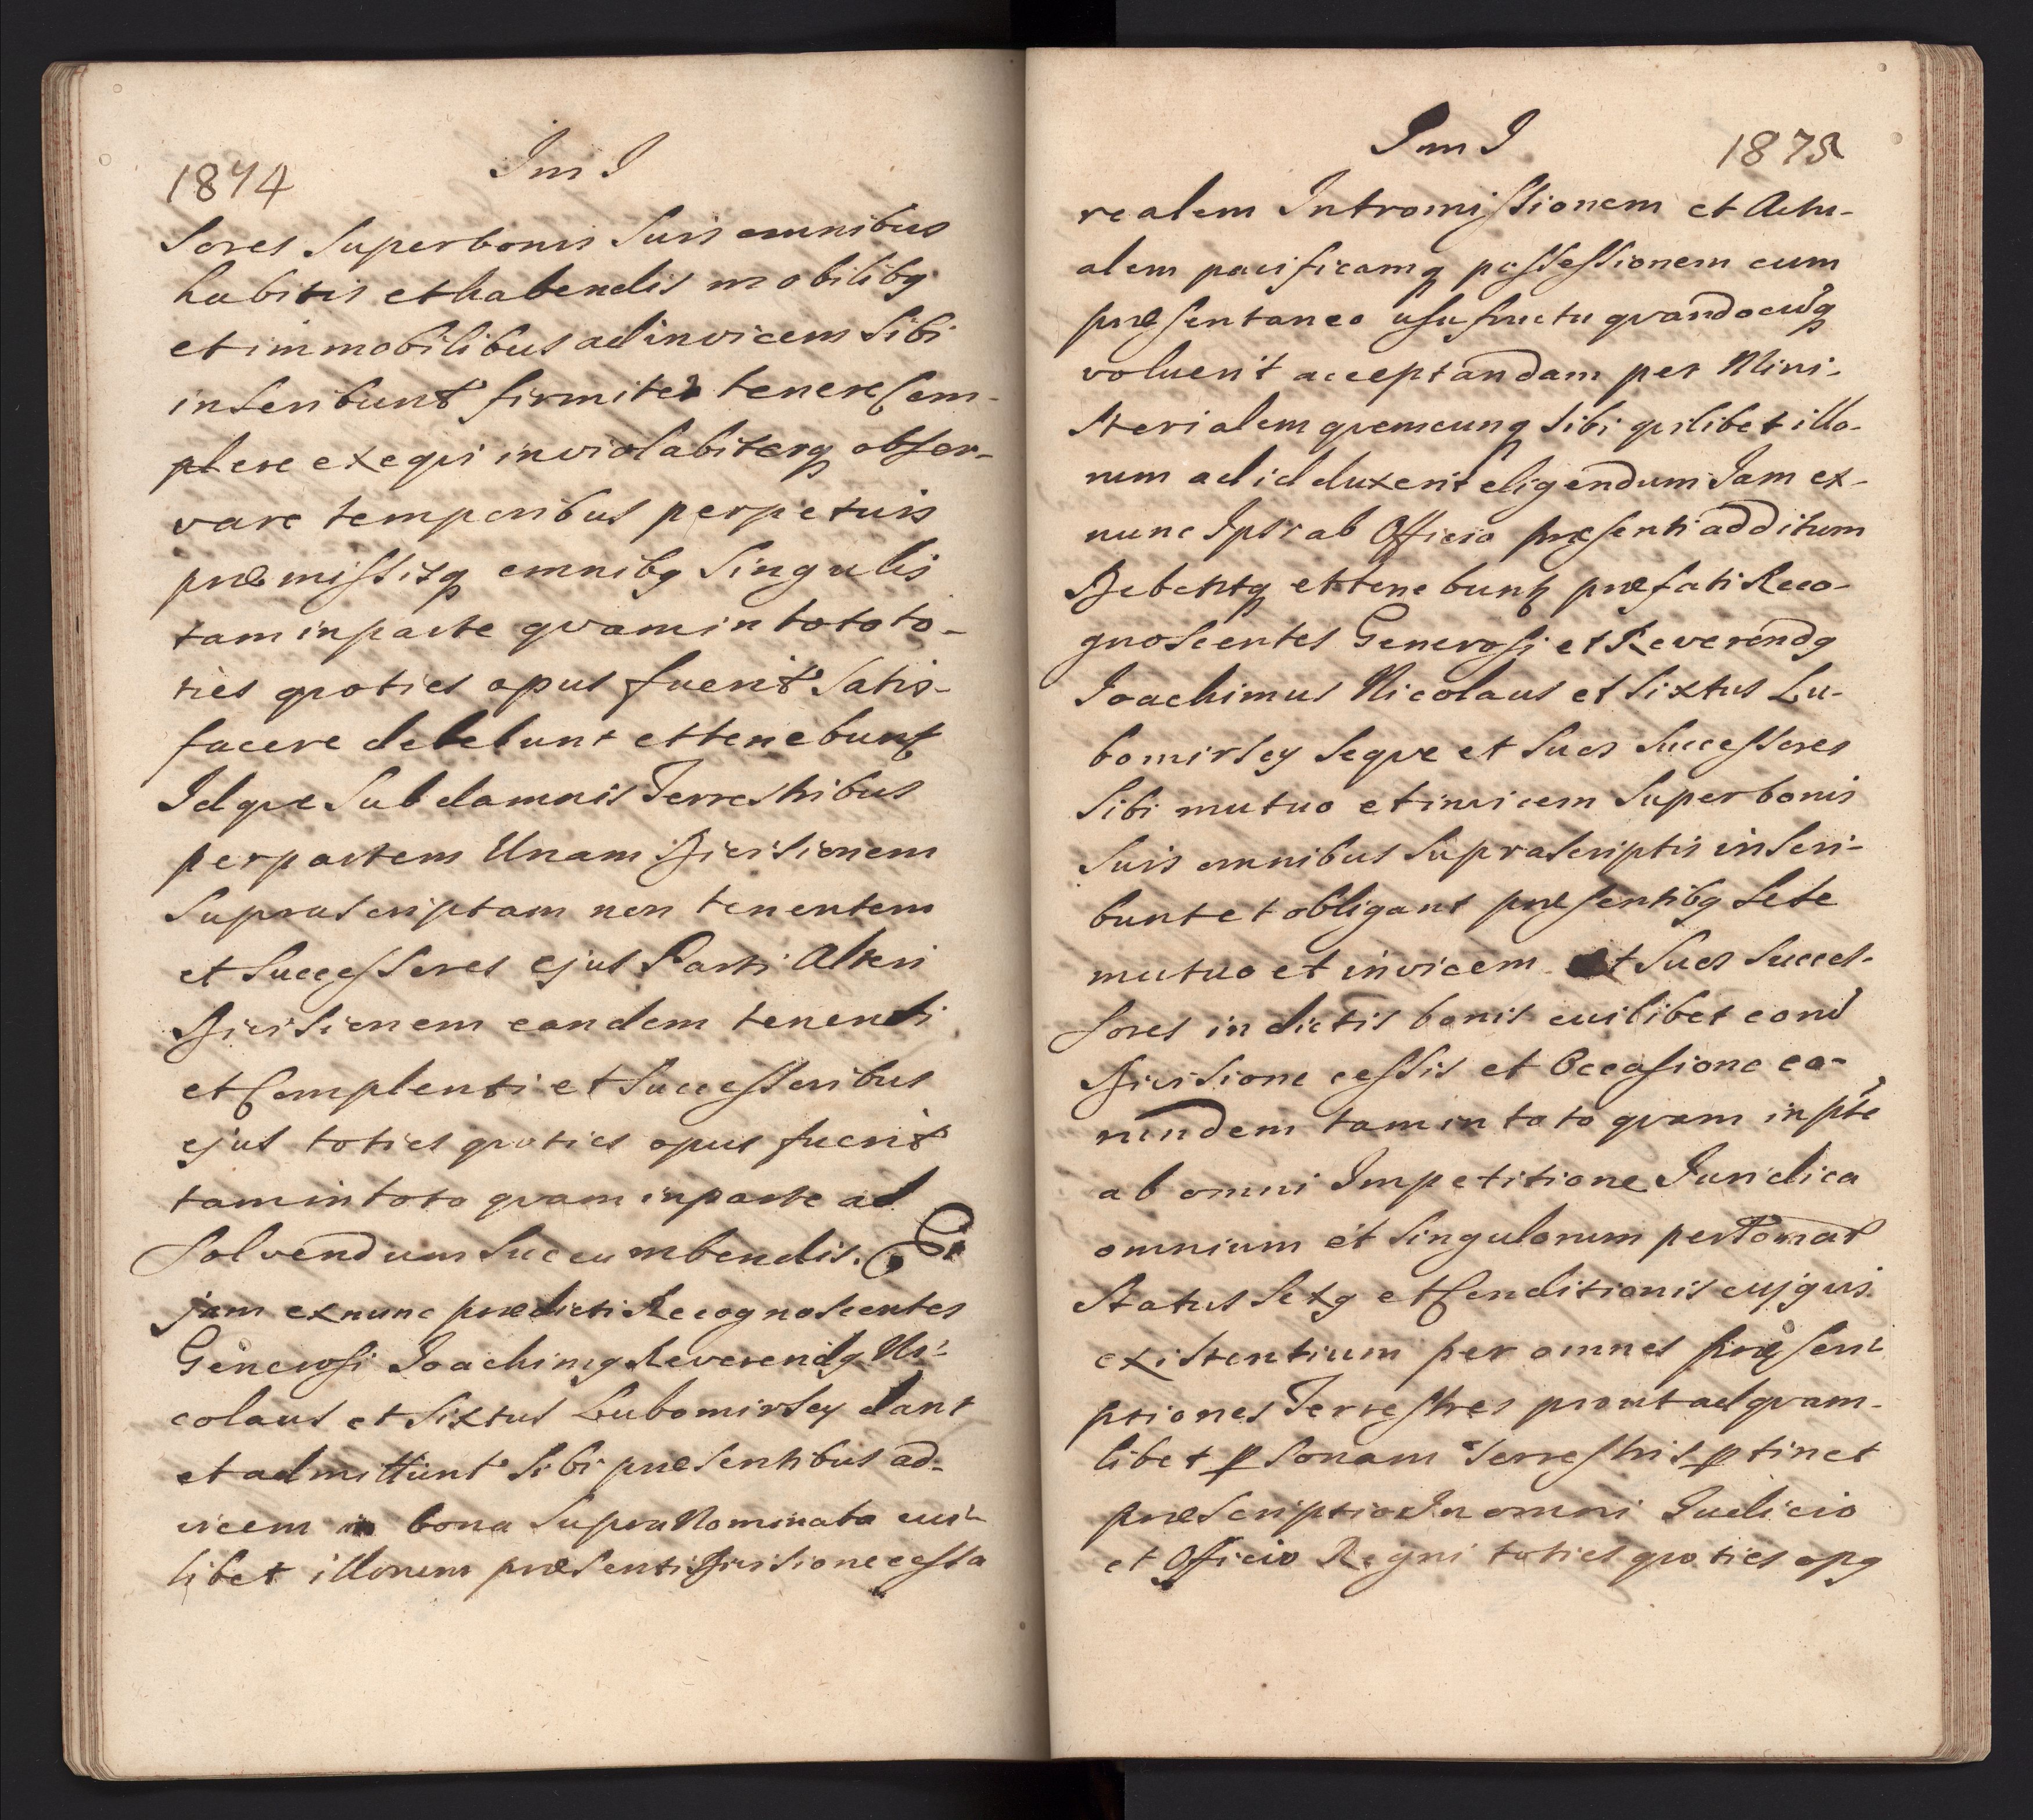 1874
Im I
sores superbonis suis omnibus
habitis et habendis mobilibq
et immobilibus ad invicem sibi
inscribunt firmiter tenere Com-
plere exeqvi inviolabiterq obser-
vare temporibus perpetuis
præmissisq omnibq singulis
tam inparte qvam in toto to-
ties qvoties opus fuerit satis-
facere debebunt et tenebunt
Idqve sub damnis Terrestribus
per partem Unam Divisionem
suprascriptam non tenentem
et successores ejus Parti Alteri
Divisionem eandem tenenti
et Complenti et Successoribus
ejus toties qvoties opus fuerit
tam in toto qvam inparte ad
solvendum succumbendis. Et
jam exnunc prædicti Recognoscentes
Generosi Joachimq Reverendq Ni-
colaus et Sixtus Lubomirscy dant
et admittunt sibi præsentibus ad-
vicem in bona supra Nominata cui-
libet illorum præsenti Divisione cessa
Im I
1875
realem Intromissionem et Actu-
alem pacificamq possessionem cum
præsentaneo usufructu qvandocunq
voluerit acceptandam per Mini-
sterialem qvemcunq sibi qvilibet illo-
rum ad id duxerit eligendum Jam ex-
nunc Ipsi ab Officio præsenti additum
Debentq et tenebunt præfati Reco-
gnoscentes Generosi et Reverendq
Joachimus Nicolaus et Sixtus Lu-
bomirscy seqve et suos successores
sibi mutuo et invicem superbonis
suis omnibus suprascriptis inscri-
bunt et obligant præsentibq sese
mutuo et invicem et suos succes-
sores in dictis bonis cuilibet eorum
Divisione cessis et Occasione eo-
rundem tam in toto qvam in pte
ab omni Impetitione Juridica
omnium et singulorum personar
status sexq et Conditionis cujqvis
existentium per omnes præscri-
ptiones Terrestres prout ad qvam-
libet psonam Terrestris ptinet
præscriptio In omni Judicio
et Officio Regni toties qvoties opq